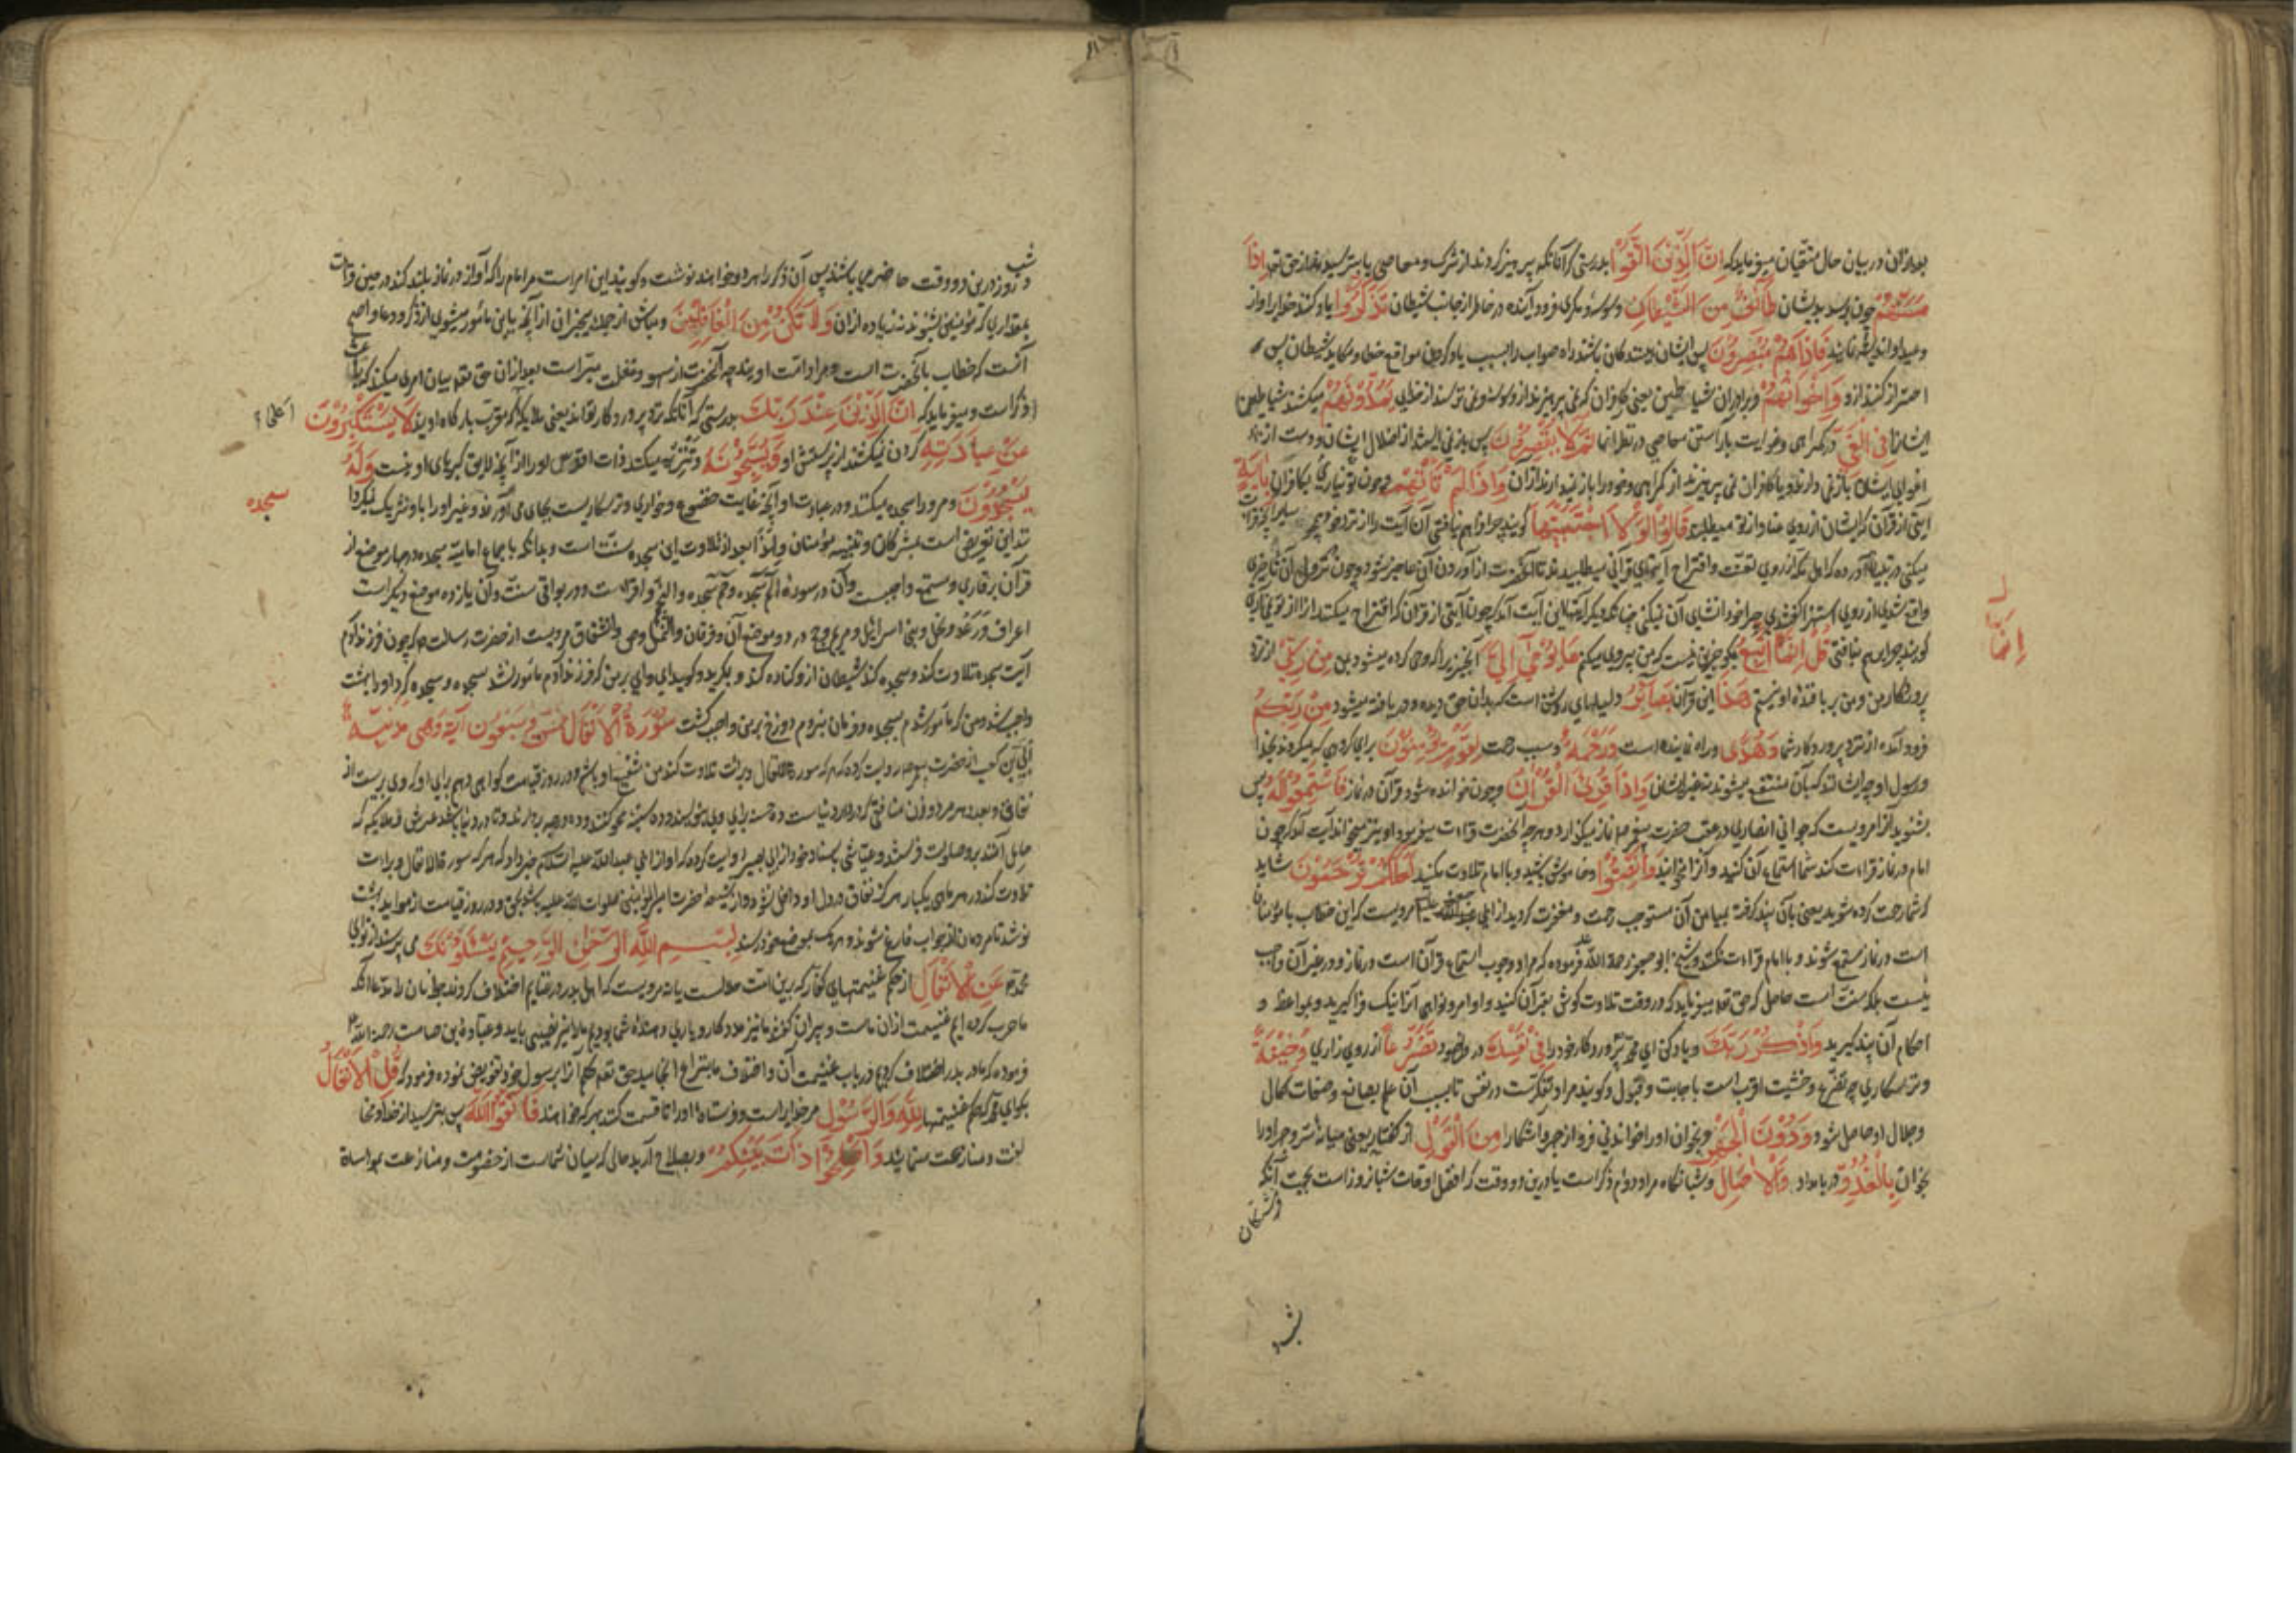 بعد ازان در بیان حال متقیان میفرماید که اِنَّ الَّذِیْنَ اتَّقَوْا بدرستی که آنانکه پرهیز کردند از شرک و معاصی یا بترسیدند از حق تع اِذَا
مَسَّهُمْ چون برسد بدیشان طَائِفٌ مِنَ الشَّیْطَانِ وسوسه و مکری فرود آینده در خاطر از جانب شیطان تَذَکَّرُوْا یاد کنند خدایرا و از
وعید او اندیشه نمایند فَاِذَاهُمْ مُبْصِرُوْنَ پس ایشان بینندگان باشند راه صواب را بسبب یاد کردن مواقع خطا و مکاید شیطان پس
احتراز کنند ازو وَاِخْوَانُهُمْ و برادران شیاطین یعنی کافران که نمی پرهیزند از وسوسه و نمی ترسند از خدای یَمُدُّوْنَهُمْ میکشند شیاطین
ایشانرا فِی الْغَیِّ در گمراهی و غوایت بآراستن معاصی در نظر آنها ثُمَّ لَا یُقْصِرُوْنَ پس باز نمی ایستند از اضلال ایشان و دست از
اغوای ایشان باز نمی دارند و یا کافران نمی پرهیزند از گمراهی و خود را باز نمیدارند از آن وَاِذَا لَمْ تَأْتِهِمْ و چون تو نیاری بکافران بِاٰیَةٍ
آیتی از قرآن که ایشان از روی عناد از تو میطلبند قَالُوْا لَوْلَا اجْتَبَیْتَهَا گویند چرا فراهم نیافتی آن آیت را از نزد خود
میکنی در تبیان آورده که اهل مکه از روی تعنت و اقتراح آیتهای قرآنی میطلبیدند تا آنحضرت از آوردن آن عاجز شود و چون نزول آن تأخیری
واقع شدی از روی استهزا گفتندی چرا خود انشای آن نمیکنی چنانکه دیگر آیتها این آیت آمد که چون آیتی از قرآن که اقتراح میکنند از تو نیاری
گویند چرا بهم نیافتی قُلْ اِنَّمَا اَتَّبِعُ بگو جز این نیست که من پیروی میکنم مَا یُوْحٰی اِلَیَّ آنچیز را که وحی کرده میشود بمن مِنْ رَبِّیْ از نزد
پروردگار من و من بر بافنده او نیستم هٰذَا این قرآن بَصَائِرُ دلیلهای روشن است که بدان حق دیده و دریافته میشود مِنْ رَبِّکُمْ
فرود آمده از نزد پروردگار شما وَهُدًی و راه نماینده است وَرَحْمَةٌ و سبب رحمت لِقَوْمٍ یُؤْمِنُوْنَ برای گروهی که میگروند بخدا
و رسول او چه ایشانند که بآن منتفع میشوند نه غیر ایشان وَاِذَا قُرِئَ الْقُرْاٰنُ و چون خوانده شود قرآن در نماز فَاسْتَمِعُوْا لَهُ پس
بشنوید آنرا مرویست که جوانی انصاری در عقب حضرت پیغمبر نماز میگزارد و هر چه آنحضرت قراءت میفرمود او نیز میخواند آیت آمد که چون
امام در نماز قراءت کند شما استماع آن کنید و آنرا نخوانید وَاَنْصِتُوْا و خاموش باشید و با امام تلاوت مکنید لَعَلَّکُمْ تُرْحَمُوْنَ شاید
که شما رحمت کرده شوید یعنی بآن پند گرفته بمیامن آن مستوجب رحمت و مغفرت گردید از ابی عبدالله مرویست که این خطاب با مؤمنان
است در نماز مستمع شوند و با امام قراءت نکنند و شیخ ابو جعفر رحمه الله فرموده که مراد وجوب استماع قرآن است در نماز و در غیر آن واجب
نیست بلکه سنت است حاصل که حق تع میفرماید که در وقت تلاوت گوش بقرآن کنید و اوامر و نواهی آنرا نیک فرا گیرید و بمواعظ و
احکام آن پند گیرید وَاذْکُرْ رَبَّکَ و یاد کن ای محمد پروردگار خود را فِیْ نَفْسِکَ در دل خود تَضَرُّعًا از روی زاری وَخِیْفَةً
و ترسکاری چه تضرع و خشیت اقرب است باجابت و قبول و گویند مراد تفکرست در نفس تا بسبب آن علم بصانع و صفات کمال
و جلال او حاصل شود وَدُوْنَ الْجَهْرِ و بخوان او را خواندنی فروتر از جهر و آشکارا مِنَ الْقَوْلِ از گفتار یعنی میانه سر و جهر او را
بخوان بِالْغُدُوِّ در بامداد وَالْاٰصَالِ و شبانگاه مراد دوام ذکر است یا درین دو وقت که افضل اوقات شبانروز است بجهت آنکه
فرشتگان
شب
اِنَّمَا
شب
و روز درین دو وقت حاضر می باشند پس آن ذکر را هر دو خواهند نوشت و گویند این امر است مر امام را که آواز در نماز بلند کند در حین قراءت
بمقداری که مؤتمین بشنوند نه زیاده ازان وَلَا تَکُنْ مِنَ الْغَافِلِیْنَ و مباش از جمله بیخبران از آنچه باین مأمور میشوی از ذکر و دعا و اصح
آنست که خطاب بآنحضرت است و مراد امت اویند چه آنحضرت از سهو و غفلت مبراست بعد ازان حق تع بیان امری میکند که باعث
ذکر است و میفرماید که اِنَّ الَّذِیْنَ عِنْدَ رَبِّکَ بدرستی که آنانکه نزد پروردگار تواند یعنی ملایکه که مقرب بارگاه اویند لَا یَسْتَکْبِرُوْنَ
عَنْ عِبَادَتِهِ گردن نمیکشند از پرستش او وَیُسَبِّحُوْنَهُ و تنزیه میکنند ذات اقدس او را از آنچه لایق کبریای او نیست وَلَهُ
یَسْجُدُوْنَ و مر او را سجده میکنند و در عبادت او آنچه غایت خضوع و خواری و ترسکاریست بجای می آورند و غیر او را با او شریک نمیکردا
نند این تعریض است بمشرکان و تنبیه مؤمنان ولهذا بعد از تلاوت این سجده سنت است و بدانکه باجماع امامیه سجده در چهار موضع از
قرآن بر قاری و مستمع واجبست و آن در سوره الم سجده و حم سجده و النجم و اقراست و در بواقی سنت و آن یازده موضع دیگر است
اعراف و رعد و نحل و بنی اسرائیل و مریم و حج در دو موضع آن و فرقان و النمل و ص و انشقاق مرویست از حضرت رسالت ص که چون فرزند آدم
آیت سجده تلاوت کند و سجده کند شیطان ازو کناره کند و بگرید و گوید ای وای بر من که فرزند آدم مأمور شد بسجده و سجده کرد او را بهشت
واجب شد و من که مأمور شدم بسجده و فرمان نبردم دوزخ بر من واجب گشت سُوْرَةُ الْاَنْفَالِ خمس و سبعون آیة وهی مدنیة
ابی بن کعب از حضرت پیغمبر روایت کرده که هر که سوره انفال و براءت تلاوت کند من شفیع او باشم و در روز قیامت گواهی دهم برای او که وی بریست از
نفاق و بعدد هر مرد و زن منافق که در دار دنیاست ده حسنه برای وی بنویسند و ده سیئه محو کنند و ده درجه بردارند و تا در دنیا باشد عرش و ملایکه که
حامل آنند برو صلوات فرستند و عیاشی باسناد خود از ابی بصیر روایت کرده که او از ابی عبدالله علیه السلام خبر داد که هر که سوره انفال و براءت
تلاوت کند در هر ماهی یکبار هرگز نفاق در دل او داخل نشود و از شیعه حضرت امیر المؤمنین صلوات الله علیه باشد بحق و در روز قیامت از موائد بهشت
نوشد تا مردمان از حساب فارغ شوند و هر یک بموضع خود رسند بِسْمِ اللّٰهِ الرَّحْمٰنِ الرَّحِیْمِ یَسْئَلُوْنَکَ می پرسند از تو ای
محمد عَنِ الْاَنْفَالِ از حکم غنیمتهای کفار که برین امت حلالست یا نه مرویست که اهل بدر در غنایم اختلاف کردند جوانان را مدعا آنکه
ما حرب کرده ایم غنیمت ازان ماست و پیران گفتند ما نیز مددکار و یاری دهنده شما بودیم ما را نیز نصیبی باید و عبادة بن صامت رحمه الله
فرموده که ما در بدر اختلاف کردیم در باب غنیمت آن و اختلاف ما بنزاع انجامید حق تع حکم آنرا برسول خود تفویض نموده فرمود که قُلِ الْاَنْفَالُ
بگو ای محمد که حکم غنیمتها لِلّٰهِ وَالرَّسُوْلِ مر خدایراست و فرستاده او را تا قسمت کند بهر که خواهند فَاتَّقُوا اللّٰهَ پس بترسید از خدا و مخا
لفت و منازعت منمایید وَاَصْلِحُوْا ذَاتَ بَیْنِکُمْ و بصلاح آرید حالی که میان شماست از خصومت و منازعت بمواساة
سجده